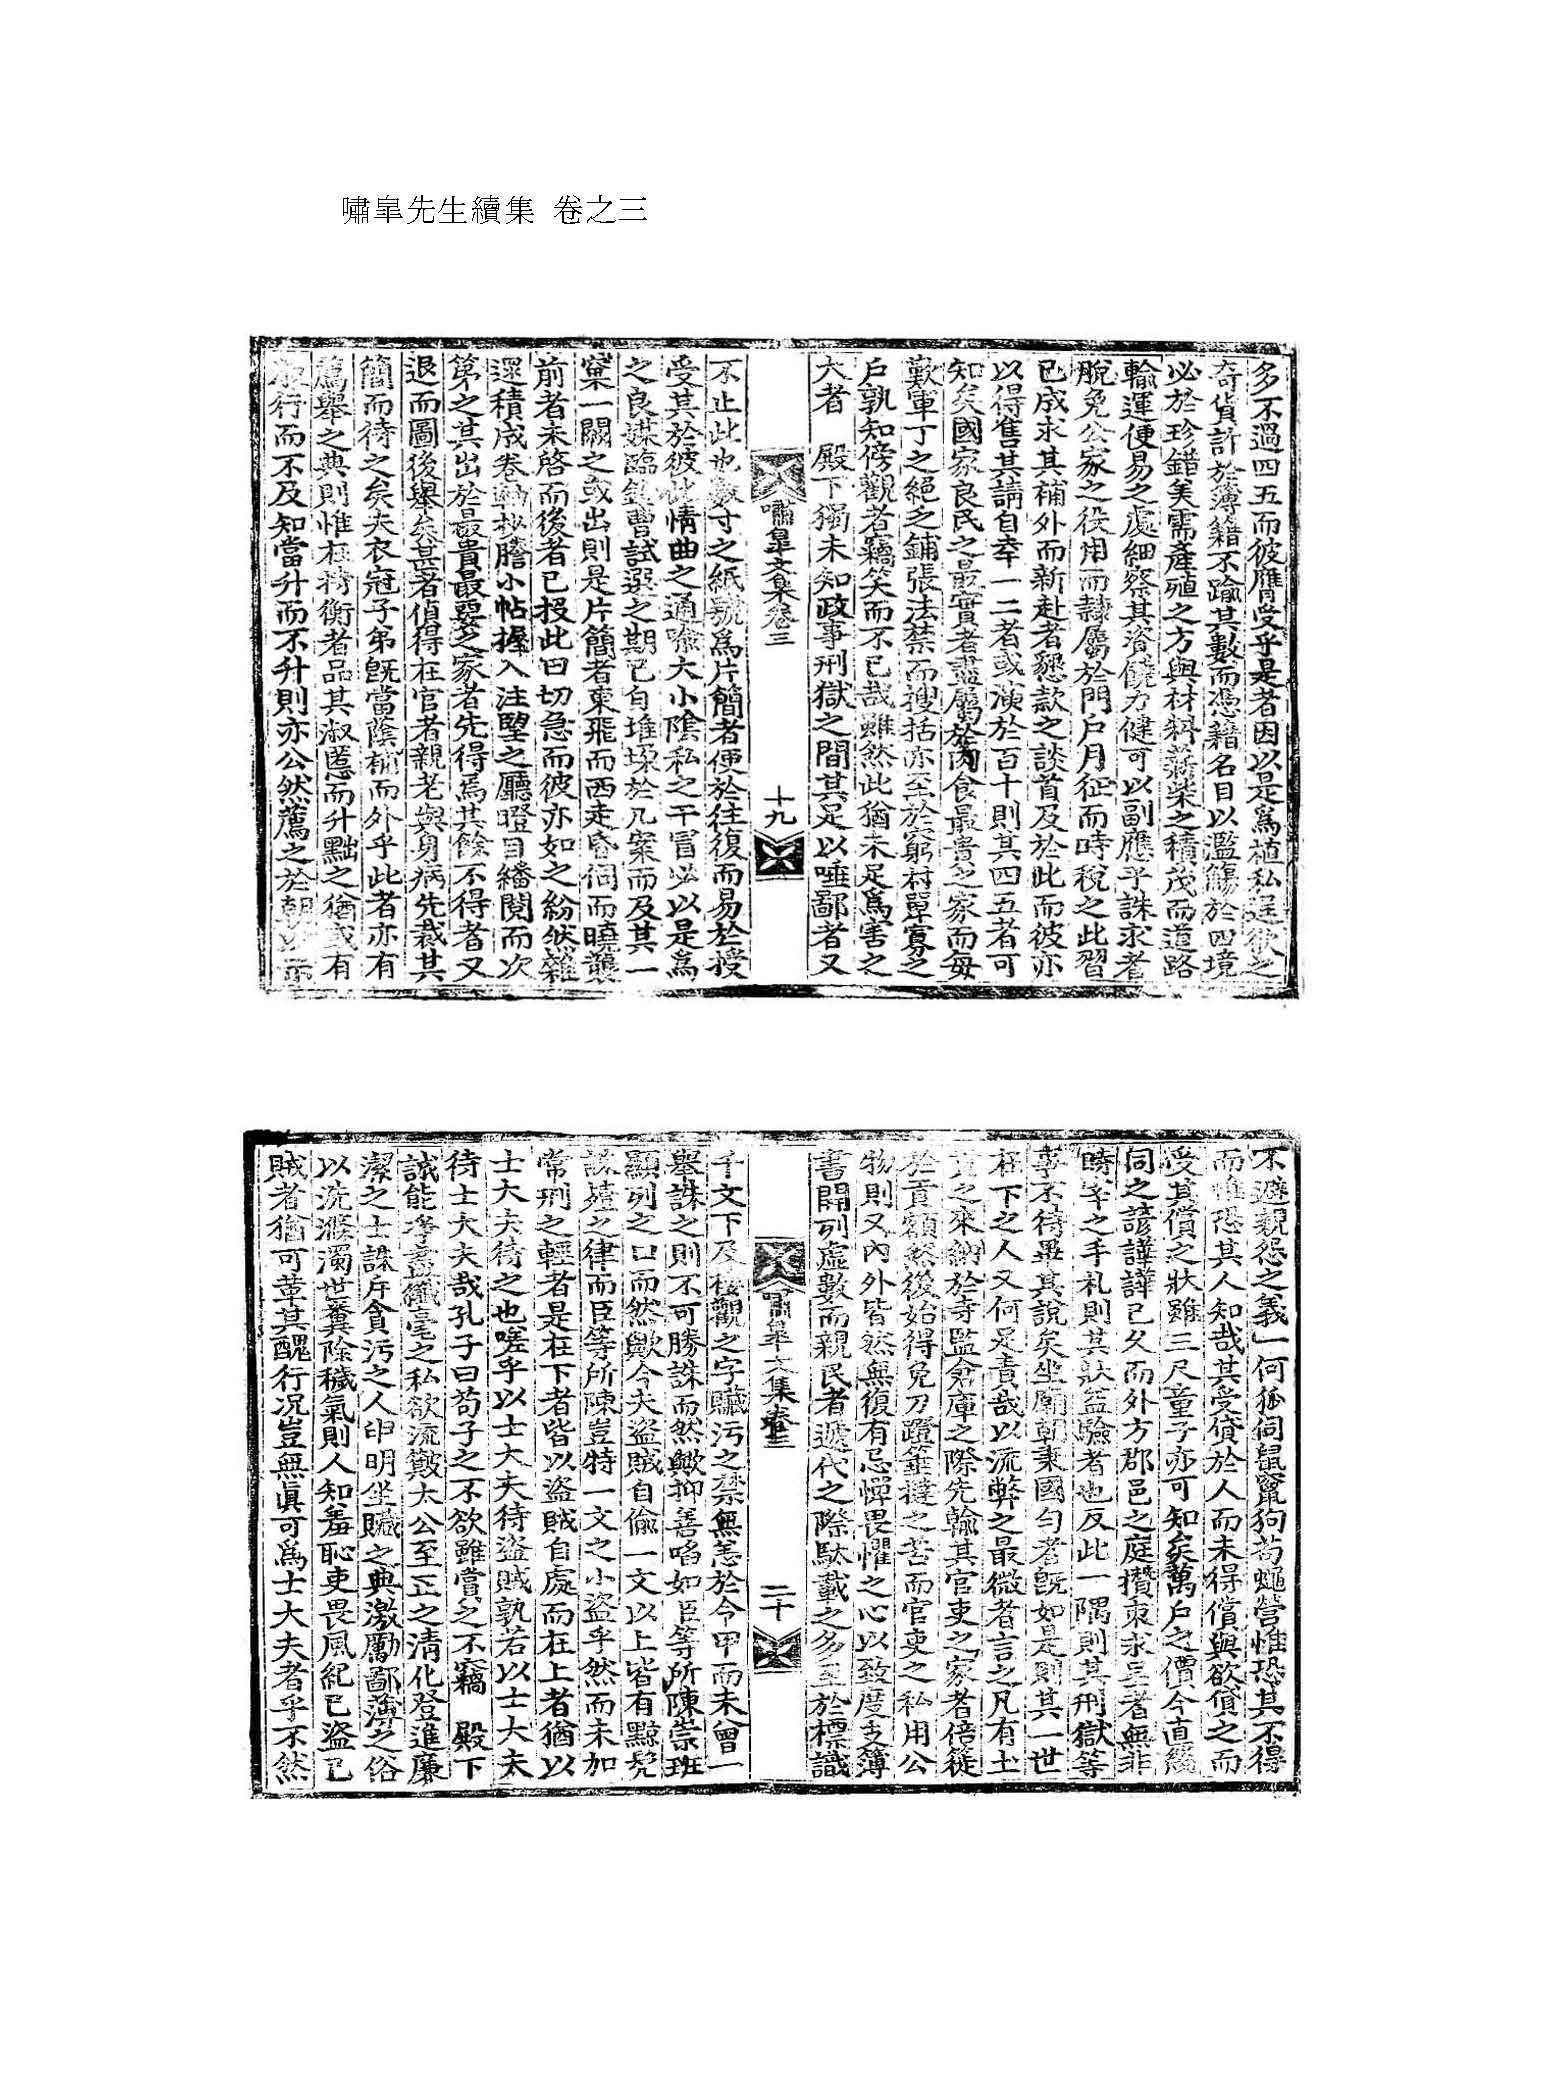 嘯皐先生續集 卷之三
多不過四五而彼膺受乎是者因以是爲植私逞欲之
奇貨許於簿籍不踰其數而憑藉名目以濫觴於四境
必於珍錯美需產殖之方與材料薪柴之積茂而道路
輸運便易之處細察其資饒力健可以副應乎誅求者
脫免公家之役用而隷屬於門戶月征而時稅之此習
已成求其補外而新赴者懇款之談首及於此而彼亦
以得售其請自幸一二者或演於百十則其四五者可
知矣國家良民之最實者盡屬於肉食最貴之家而每
歎軍丁之絕乏鋪張法禁而搜括亦至於窮村單寡之
戶孰知傍觀者竊笑而不已哉雖然此猶未足爲害之
大者 殿下獨未知政事刑獄之間其足以唾鄙者又
嘯皐文集卷三
十九
不止此也數寸之紙號爲片簡者便於往復而易於授
受其於彼此情曲之通喩大小陰私之干冒必以是爲
之良媒臨銓曹試選之期已自堆垜於几案而及其一
窠一闕之或出則是片簡者東飛而西走昏伺而曉襲
前者未啓而後者已投此曰切急而彼亦如之紛然雜
還積成卷軸抄謄小帖握入注望之廳瞪目繙閱而次
第之其出於最貴最要之家者先得焉其餘不得者又
退而圖後擧矣甚者偵得在官者親老與身病先裁其
簡而待之矣夫衣冠子弟旣當蔭補而外乎此者亦有
薦擧之典則惟在持衡者品其淑慝而升黜之猶或有
行而不及知當升而不升則亦公然薦之於朝
不避親怨之義一何狐伺鼠竄狗苟蠅營惟恐其不得
而惟恐其人知哉其受貸於人而未得償與欲償之而
受其償之狀雖三尺童子亦可知矣萬戶之價今直綴
同之諺譁譁已久而外方郡邑之庭攢束求呈者無非
時宰之手札則其狀益驗者也反此一隅則其刑獄等
事不待畢其說矣坐廟朝秉國勻者旣如是則其一世
在下之人又何足責哉以流弊之最微者言之凡有土
貢之來納於寺監倉庫之際先輸其官吏之家者倍蓰
於貢額然後始得免刀蹬箠撻之苦而官吏之私用公
物則又內外皆然無復有忌憚畏懼之心以致度支簿
書開列虛數而親民者遞代之際駄載之多至於標識
嘯皐文集卷三
二十
千文下及樓觀之字贓污之禁無恙於令甲而未曾一
擧誅之則不可勝誅而然歟抑善啗如臣等所陳崇班
顯列之口而然歟今夫盜賊自偸一文以上皆有黥髠
誅殪之律而臣等所陳豈特一文之小盜乎然而未加
常刑之輕者是在下者皆以盜賊自處而在上者猶以
士大夫待之也嗟乎以士大夫待盜賊孰若以士大夫
待士大夫哉孔子曰苟子之不欲雖賞之不竊 殿下
誠能淨盡纖毫之私欲流敷大公至正之淸化登進廉
潔之士誅斥貪污之人申明坐贓之典激勵鄙薄之俗
以洗滌濁世糞除穢氣則人知羞恥吏畏風紀已盜已
賊者猶可革其醜行况豈無眞可爲士大夫者乎不然